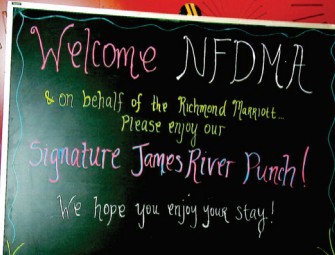 Welcome NFDMA
& on behalf of the Richmond Marriott...
Please enjoy our
Signature James River Punch!
We hope you enjoy your stay!